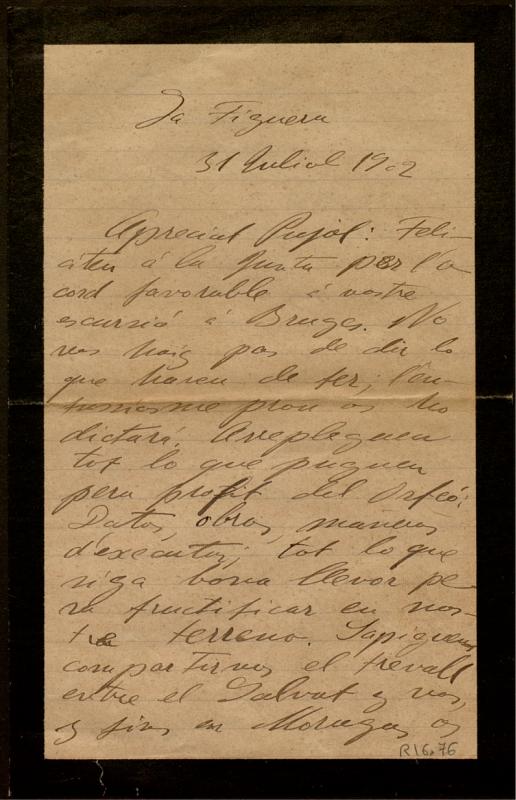 La Figuera
31 Juliol 1902
Apreciat Pujol: Feli-
citeu á la Junta per l'a
cord favorable á vostre
escursió á Bruges. No
vos haig pas de dir lo
que haveu de fer; l'en-
tusiasme prou os ho
dictará. Arrepleguen
tot lo que puguen
pera profit del Orfeó:
Datos, obras, maneras
d'executar; tot lo que
siga bona llevor pe-
ra fructificar en nos-
tre terreno. Sapigueu
compartirvos el trevall
entre el Salvat y vos,
y fins en Moragas os
R16.76